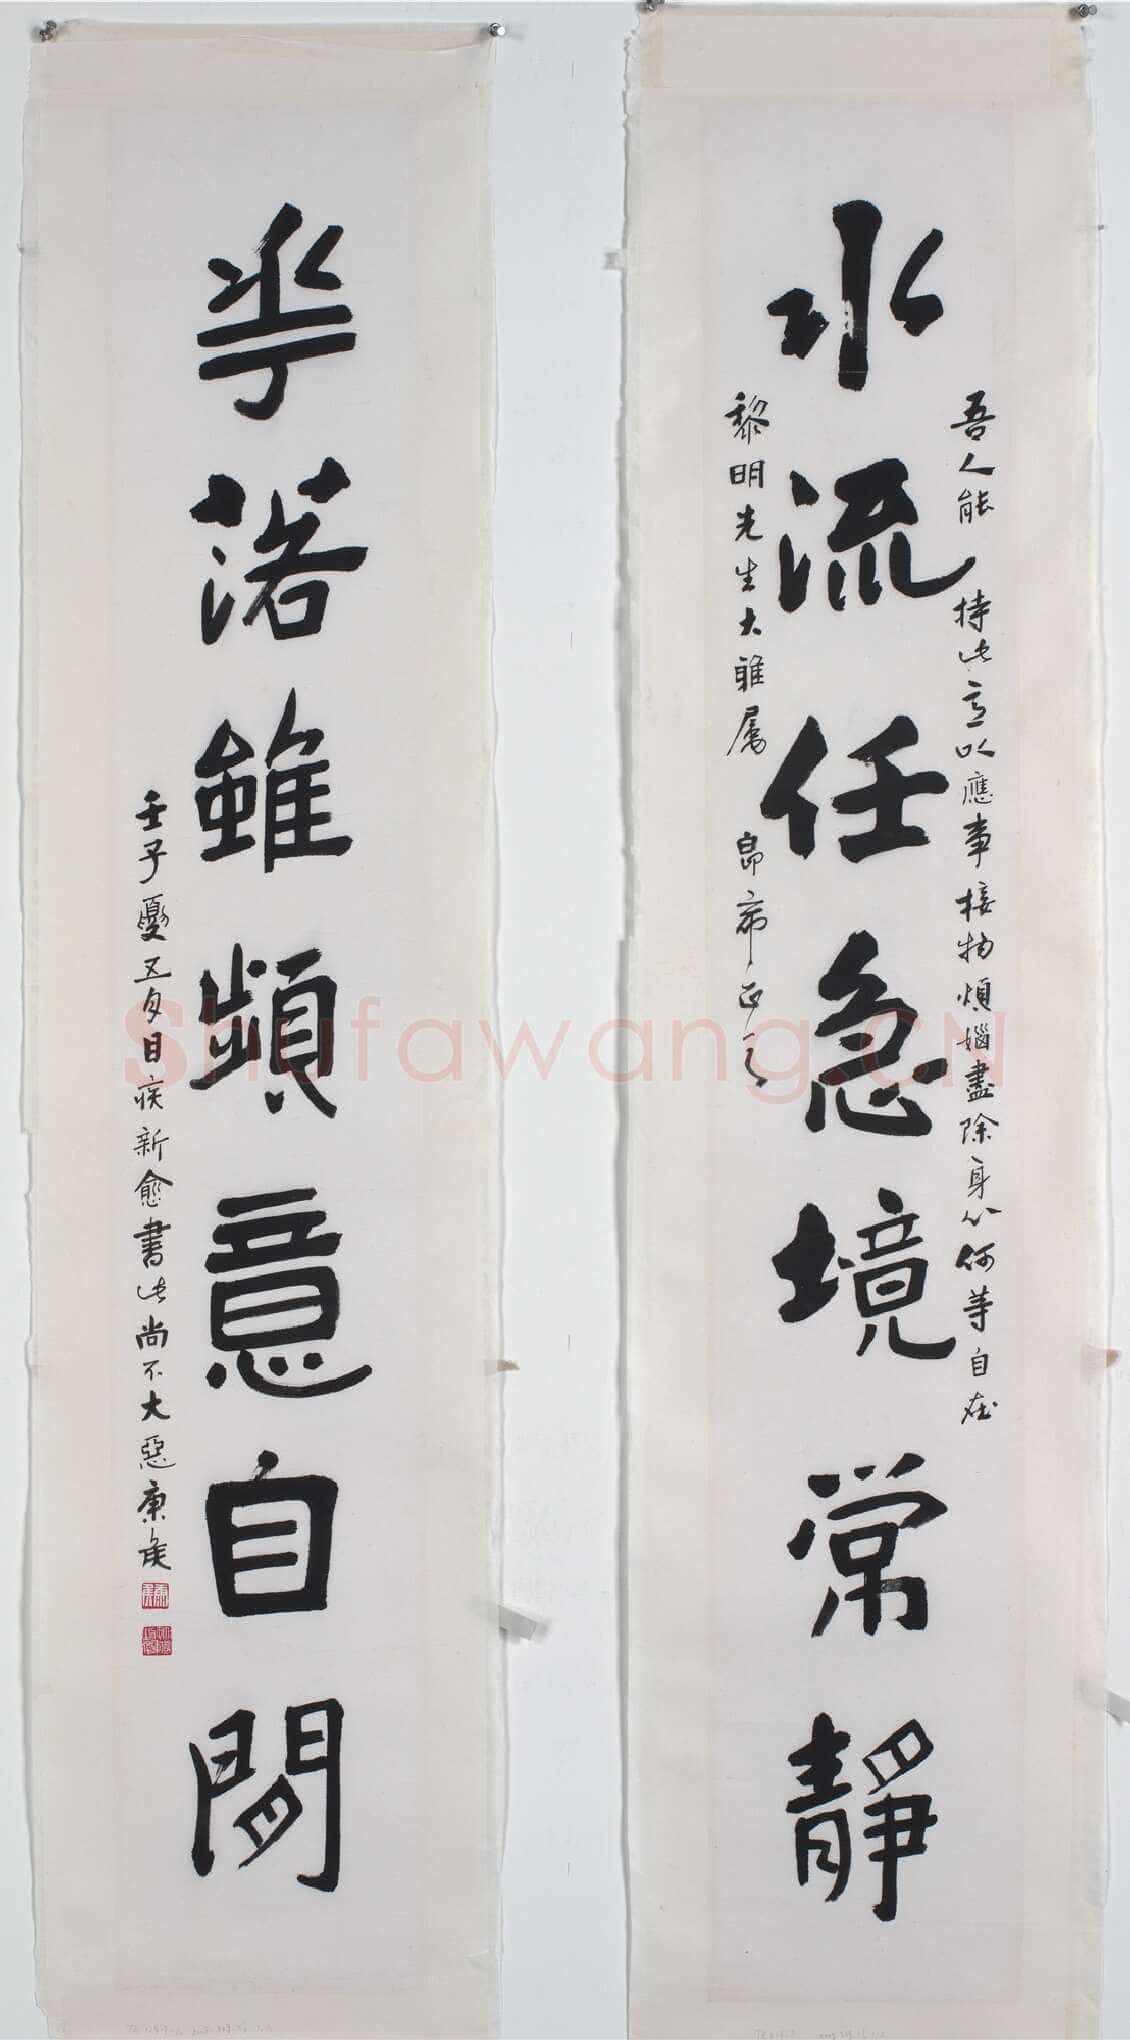 水流任急境常靜
吾人能持此意以應事接物煩惱盡除身心何等自在
黎明先生大雅屬
即希正之
花落雖頻意自閒
壬子夏五月目疾新愈書此尚不大惡康侯
Shufawang.CN